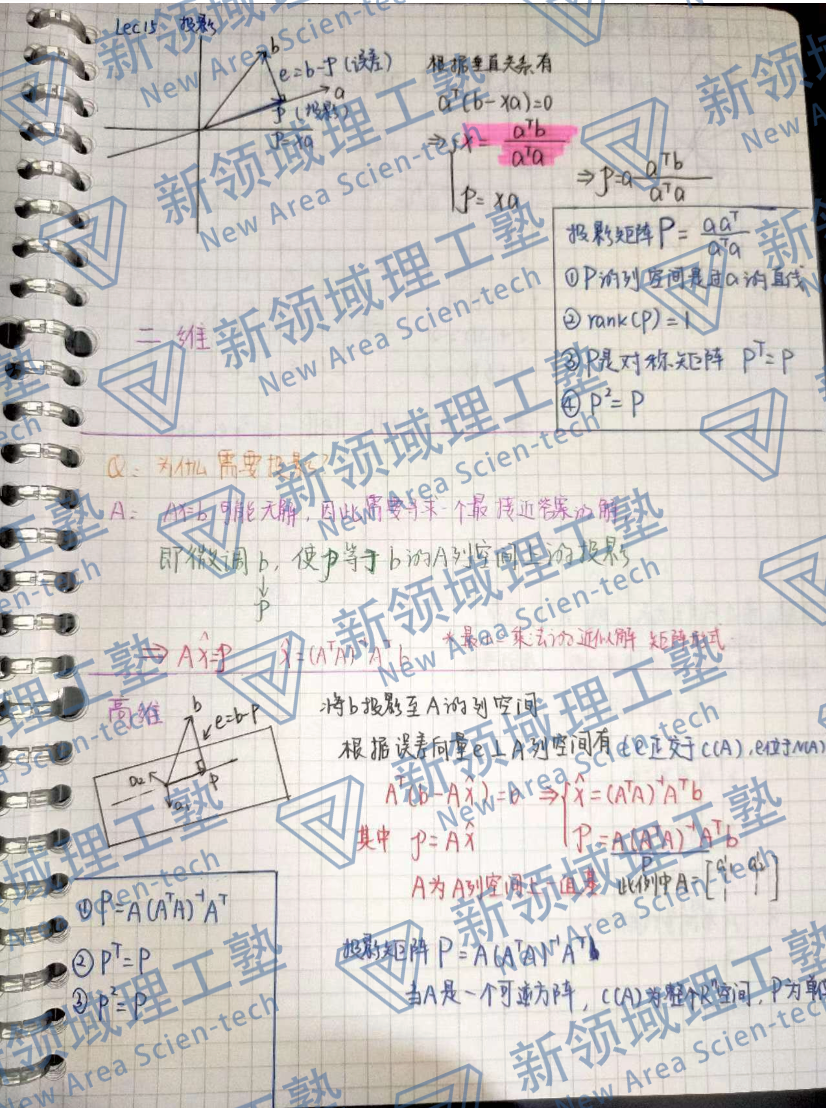 Lec15 投影
b
e=b-p (误差)
a
p (投影)
p=xa
根据垂直关系有
aᵀ(b-xa)=0
⇒ x = aᵀb / aᵀa
p = xa
⇒ p=a aᵀb / aᵀa
投影矩阵 P = aaᵀ / aᵀa
① P的列空间是过a的直线
② rank(P)=1
③ P是对称矩阵 Pᵀ=P
④ P²=P
二维
Q: 为什么需要投影?
A: Ax=b 可能无解, 因此需要寻求一个最接近答案的解
即微调 b, 使p等于 b的A列空间上的投影
↓
p
⇒ Ax̂=p x̂=(AᵀA)⁻¹Aᵀb *最小二乘法的近似解 矩阵形式
高维
b
e=b-p
a₂
p
a₁
将b投影至A的列空间
根据误差向量e⊥A列空间有 e正交于C(A), e位于N(A)
Aᵀ(b-Ax̂)=0 ⇒ x̂=(AᵀA)⁻¹Aᵀb
其中 p=Ax̂ p=A(AᵀA)⁻¹Aᵀb
P
A为A列空间上一组基 此例中A=[a₁ a₂]
投影矩阵 P = A(AᵀA)⁻¹Aᵀ
当A是一个可逆方阵, C(A)为整个Rⁿ空间, P为单
① P=A(AᵀA)⁻¹Aᵀ
② Pᵀ=P
③ P²=P
新领域理工塾
New Area Scien-tech